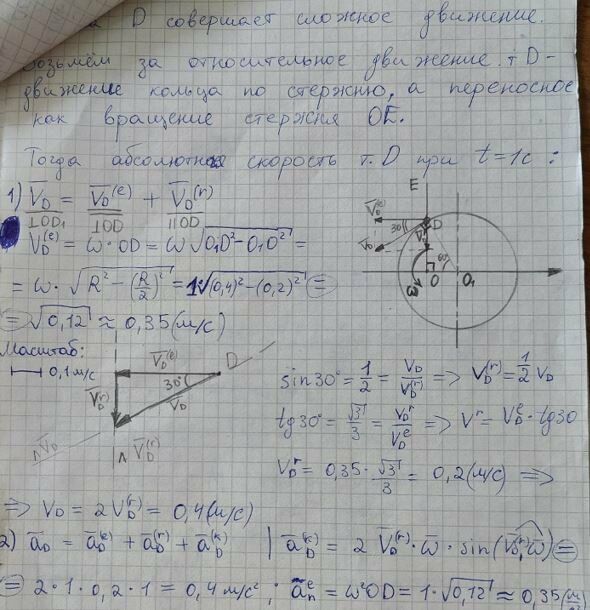 D совершает сложное движение.
Возьмём за относительное движение т D -
движение кольца по стержню, а переносное
как вращение стержня OE.
Тогда абсолютная скорость т. D при t = 1c :
1) V̅_D = V̅_D^(e) + V̅_D^(r)
⊥O₁D ⊥OD ||OD
V_D^(e) = ω · OD = ω √(O₁D² - O₁O²) =
= ω · √(R² - (R/2)²) = 1·√((0,4)² - (0,2)²) =
= √0,12 ≈ 0,35 (м/с)
E
V̅_D^(e)
30°
D
V_D
60°
ω
O
O₁
Масштаб:
0,1 м/с
V̅_D^(e)
D
30°
V̅_D^(r)
V_D
ΛV̅_D
Λ V̅_D^(r)
sin30° = 1/2 = V_D/V_D^(r) => V_D^(r) = 1/2 V_D
tg30° = √3/3 = V_D^r/V_D^e => V^r = V_D^e · tg30
V_D^r = 0,35 · √3/3 = 0,2 (м/с) =>
=> V_D = 2V_D^(r) = 0,4 (м/с)
2) a̅_D = a̅_D^(e) + a̅_D^(r) + a̅_D^(k) | a̅_D^(k) = 2 V̅_D^(r) · ω̅ · sin(V̅_D^(r), ω̅) =
= 2·1·0,2·1 = 0,4 м/с² ; a̅_n^e = ω²OD = 1·√0,12 ≈ 0,35 (м/с²)